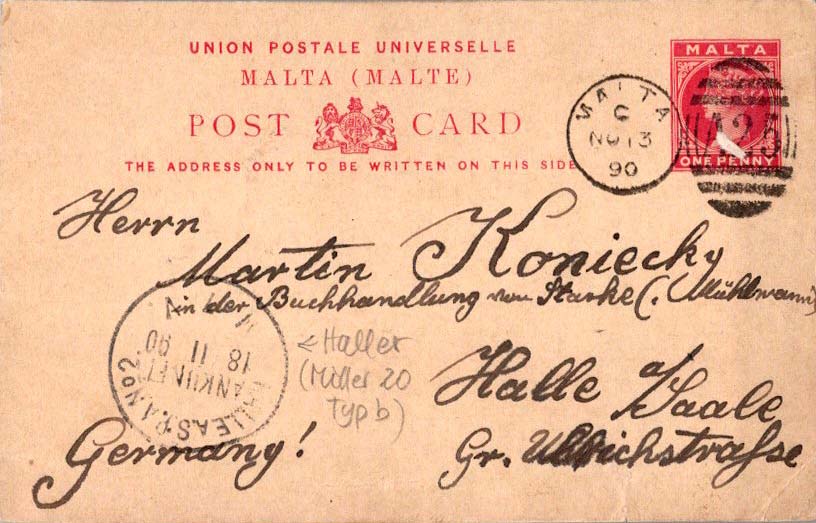 UNION POSTALE UNIVERSELLE
MALTA (MALTE)
POST CARD
THE ADDRESS ONLY TO BE WRITTEN ON THIS SIDE
MALTA
ONE PENNY
MALTA
C
NO 13
90
A25
Herrn
Martin Koniecky
in der Buchhandlung von Starke (. Mühlmann)
Halle a/Saale
Gr. Ullrichstraße
Germany!
HALLE A.S. P.A. No 2.
ANKUNFT
18 11 90
← Haller
(Müller 20
Typ b)